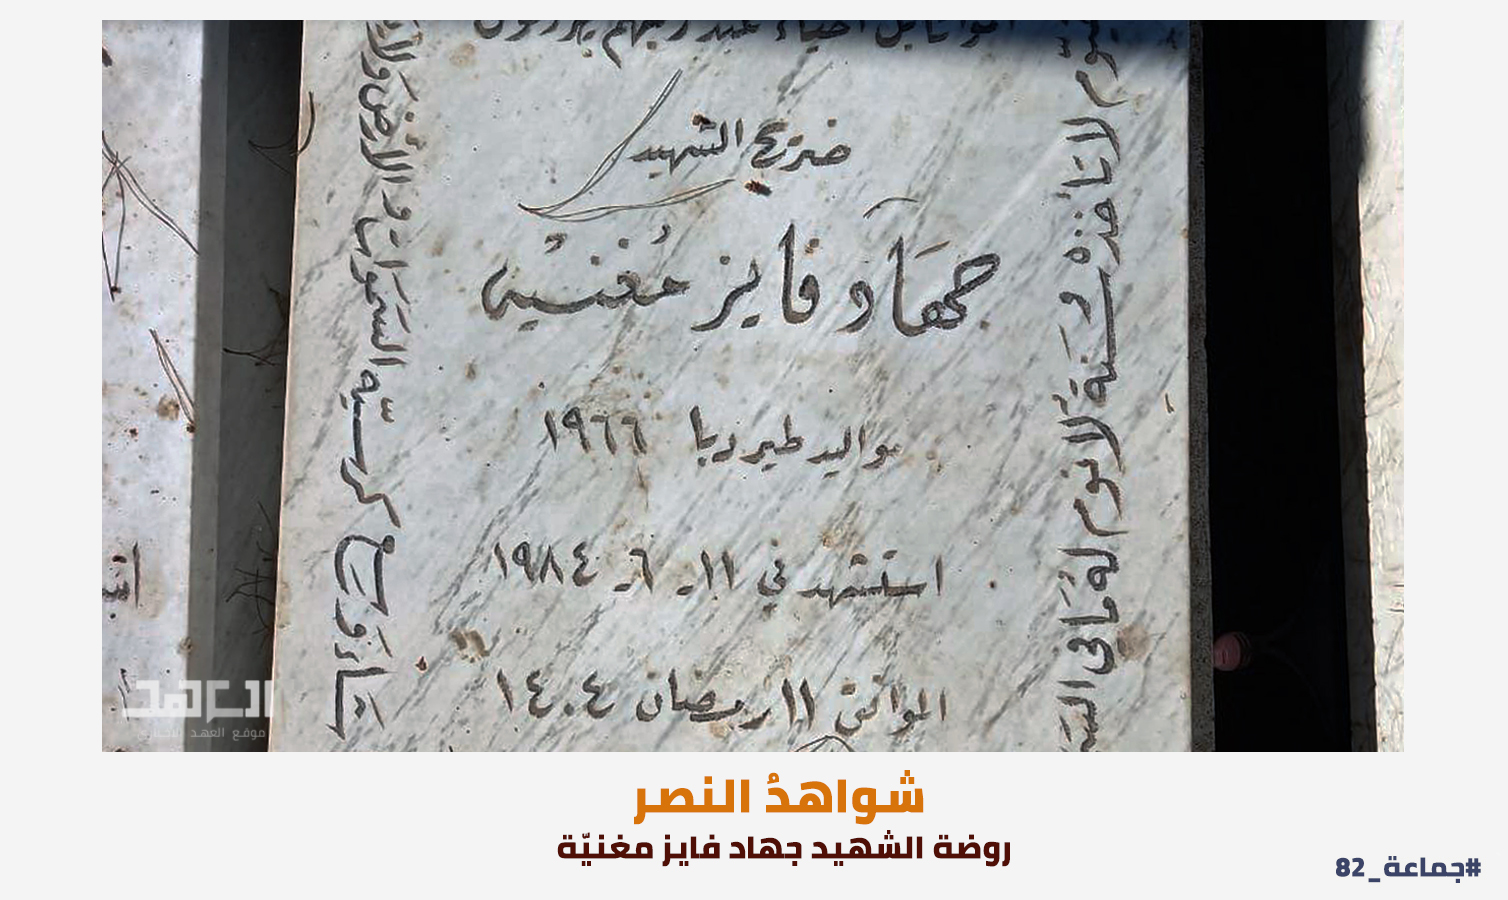 أمواتا بل أحياء عند ربهم يرزقون
ضريح الشهيد
جهَاد فايز مغنيه
مواليد طيردبا ١٩٦٦
استشهد في ١١ - ٦ - ١٩٨٤
الموافق ١١ رمضان ١٤٠٤
لا تأخذه سنة ولا نوم له ما في
كرسيه السموات والأرض ولا
العهد
موقع العهد الاخباري
شواهدُ النصر
روضة الشهيد جهاد فايز مغنيّة
#جماعة_82